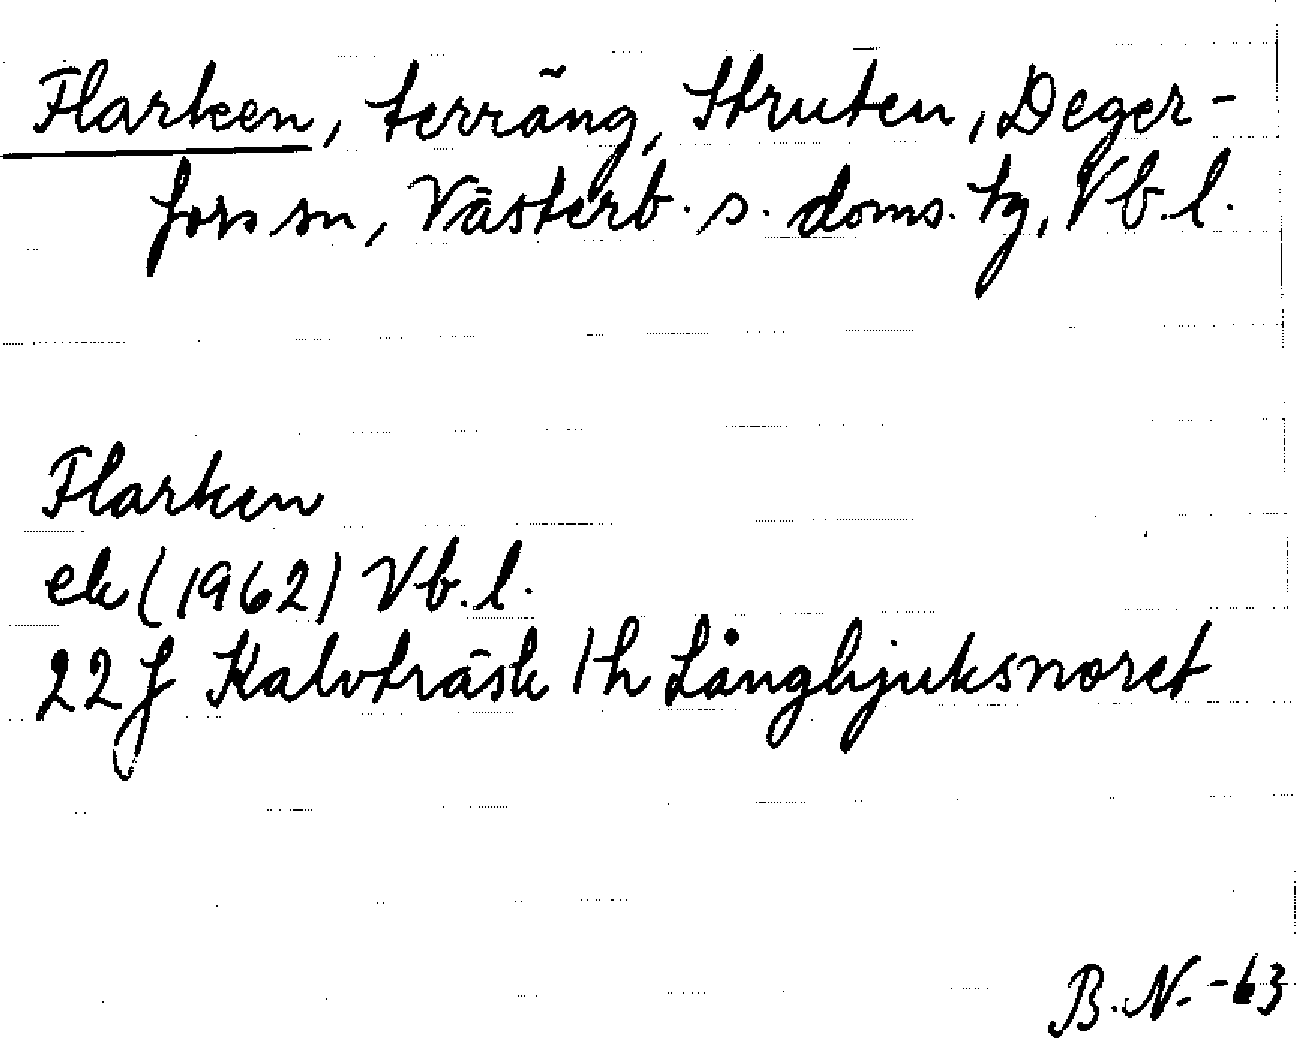 Flarken, terräng, Struten, Deger-
fors sn, Västerb. s. doms. tg, Vb. l.
Flarken
ek (1962) Vb. l.
22 J Kalvträsk 1h Långbjuksnoret
B. N. -63